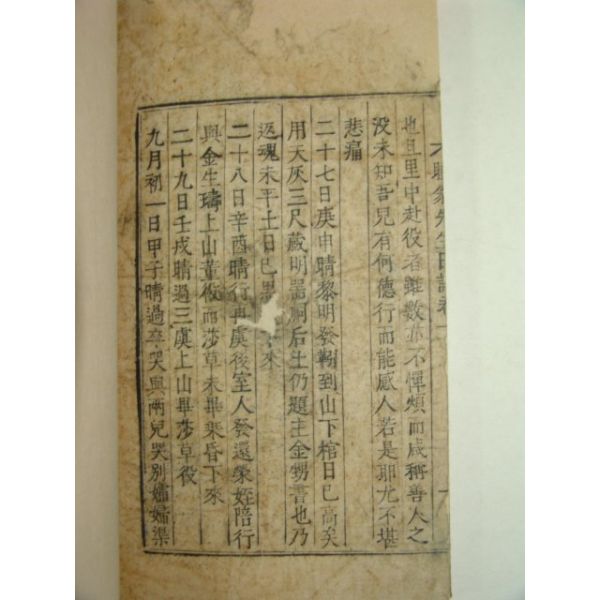 先生日記卷
也且里中赴役者雖數亦不憚煩而咸稱善人之
没未知吾兒有何德行而能感人若是耶尤不堪
悲痛
二十七日庚申晴黎明發靷到山下棺日已高矣
用天灰三尺藏明器祠后土仍題主金甥書也乃
返魂未平土日已黑來
二十八日辛酉晴行再虞後室人發還榮姪陪行
與金生上山董役而莎草未畢乘昏下來
二十九日壬戌晴過三虞上山畢莎草役
九月初一日甲子晴過卒哭與兩兒哭別孀婦渠